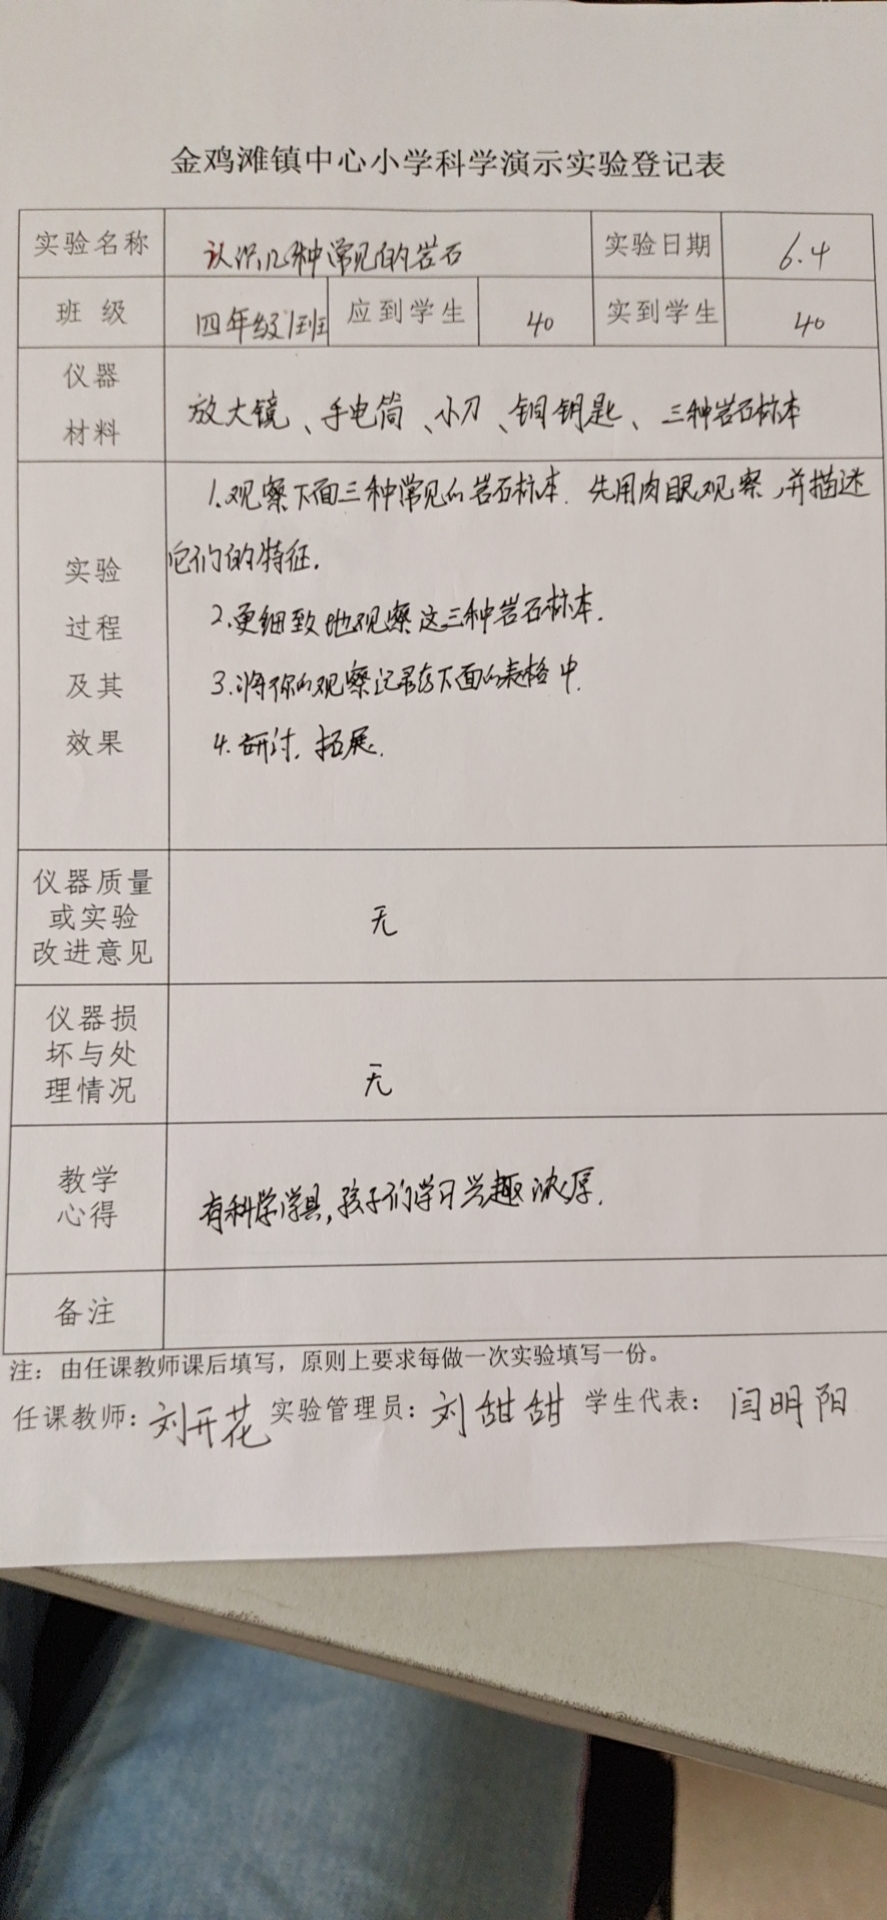 金鸡滩镇中心小学科学演示实验登记表
实验名称 认识几种常见的岩石 实验日期 6.4
班 级 四年级1班 应到学生 40 实到学生 40
仪器
材料
放大镜、手电筒、小刀、铜钥匙、三种岩石标本
实验
过程
及其
效果
1.观察下面三种常见的岩石标本.先用肉眼观察,并描述
它们的特征.
2.更细致地观察这三种岩石标本.
3.将你的观察记录在下面的表格中.
4.研讨.拓展.
仪器质量
或实验
改进意见
无
仪器损
坏与处
理情况
无
教学
心得
有科学学具,孩子们学习兴趣浓厚.
备注
注：由任课教师课后填写，原则上要求每做一次实验填写一份。
任课教师：刘开花 实验管理员：刘甜甜 学生代表：闫明阳